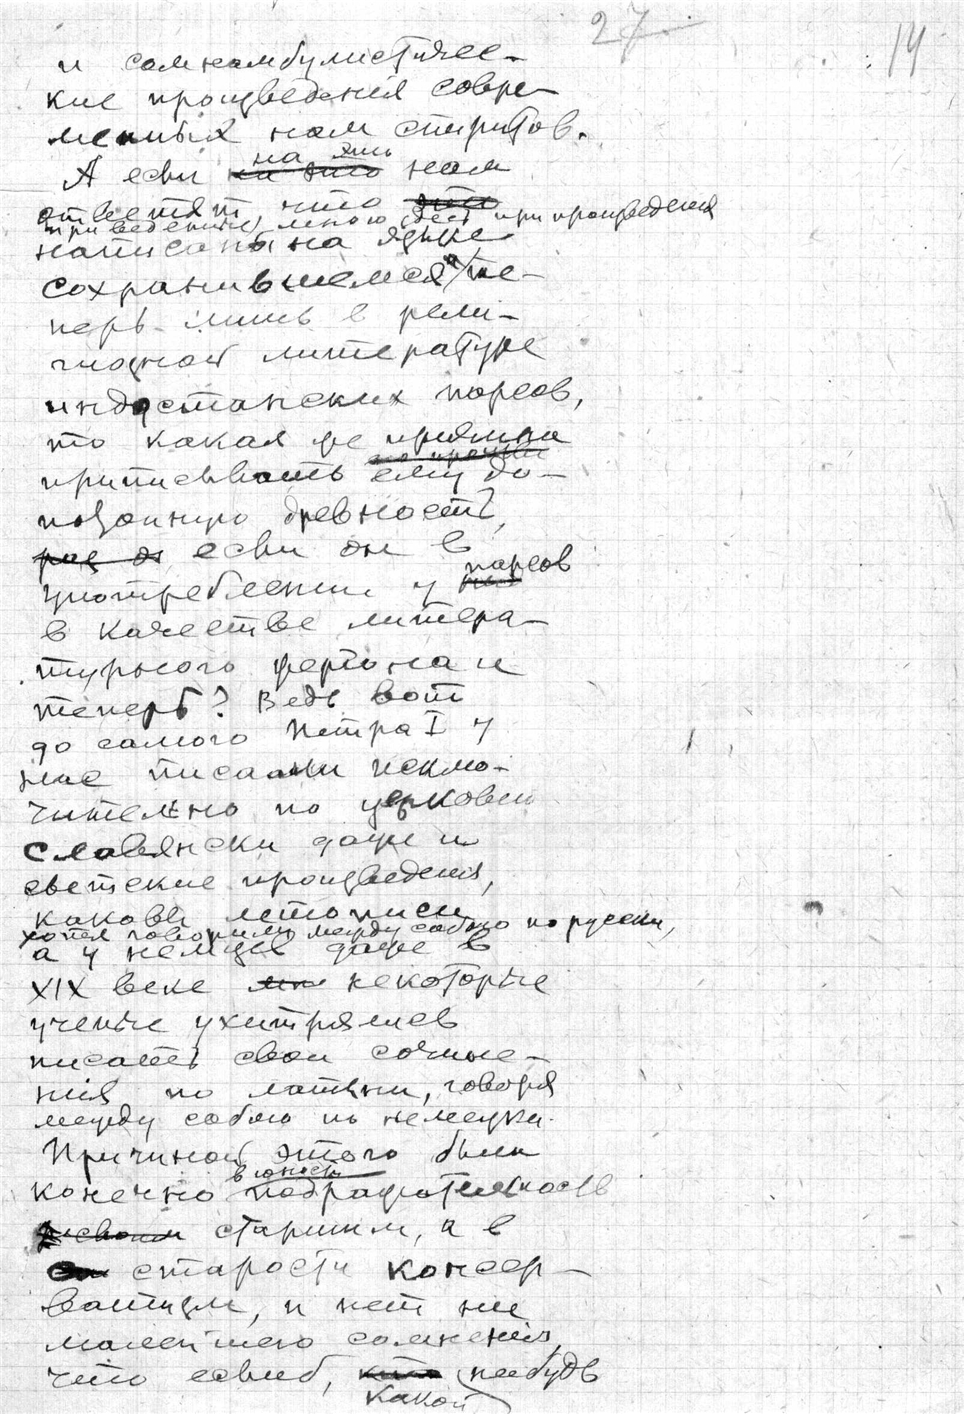 27
14
и сомнамбулистичес-
кие произведения совре-
менных нам спиритов.
А если на это нам
ответят, что
приведенные мною здесь при произведения
написаны на языке
сохранившемся те-
перь лишь в рели-
гиозной литературе
индостанских парсов,
то какая же причина
приписывать ему до-
потопную древность,
если он в
употреблении у парсов
в качестве литера-
турного жаргона и
теперь? Ведь вот
до самого Петра I у
нас писали исклю-
чительно по церковно
славянски даже и
светские произведения,
каковы летописи
хотя говорили между собою по русски,
а у немцев даже в
XIX веке некоторые
ученые ухитрялись
писать свои сочине-
ния по латыни, говоря
между собою по немецки.
Причиной этого были
в юности
конечно подражательность
старшим, а в
старости консер-
ватизм, и нет ни
малейшего сомнения,
что если б, какой нибудь